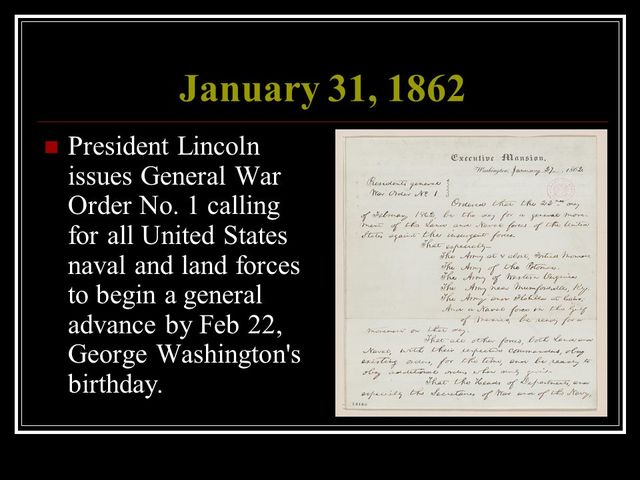 January 31, 1862
President Lincoln
issues General War
Order No. 1 calling
for all United States
naval and land forces
to begin a general
advance by Feb 22,
George Washington's
birthday.
Executive Mansion,
Washington, January 27, 1862
Presidents general
War Order No 1
Ordered that the 22nd day
of February 1862, be the day for a general move-
ment of the Land and Naval forces of the United
States against the insurgent forces.
That especially—
The Army at & about, Fortress Monroe
The Army of the Potomac.
The Army of Western Virginia
The Army near Munfordsville, Ky.
The Army and Flotilla at Cairo.
And a Naval force in the Gulf
of Mexico, be ready for a
movement on that day.
That all other forces, both Land and
Naval, with their respective commanders, obey
existing orders, for the time, and be ready to
obey additional orders when duly given.
That the Heads of Departments, and
especially the Secretaries of War and of the Navy,